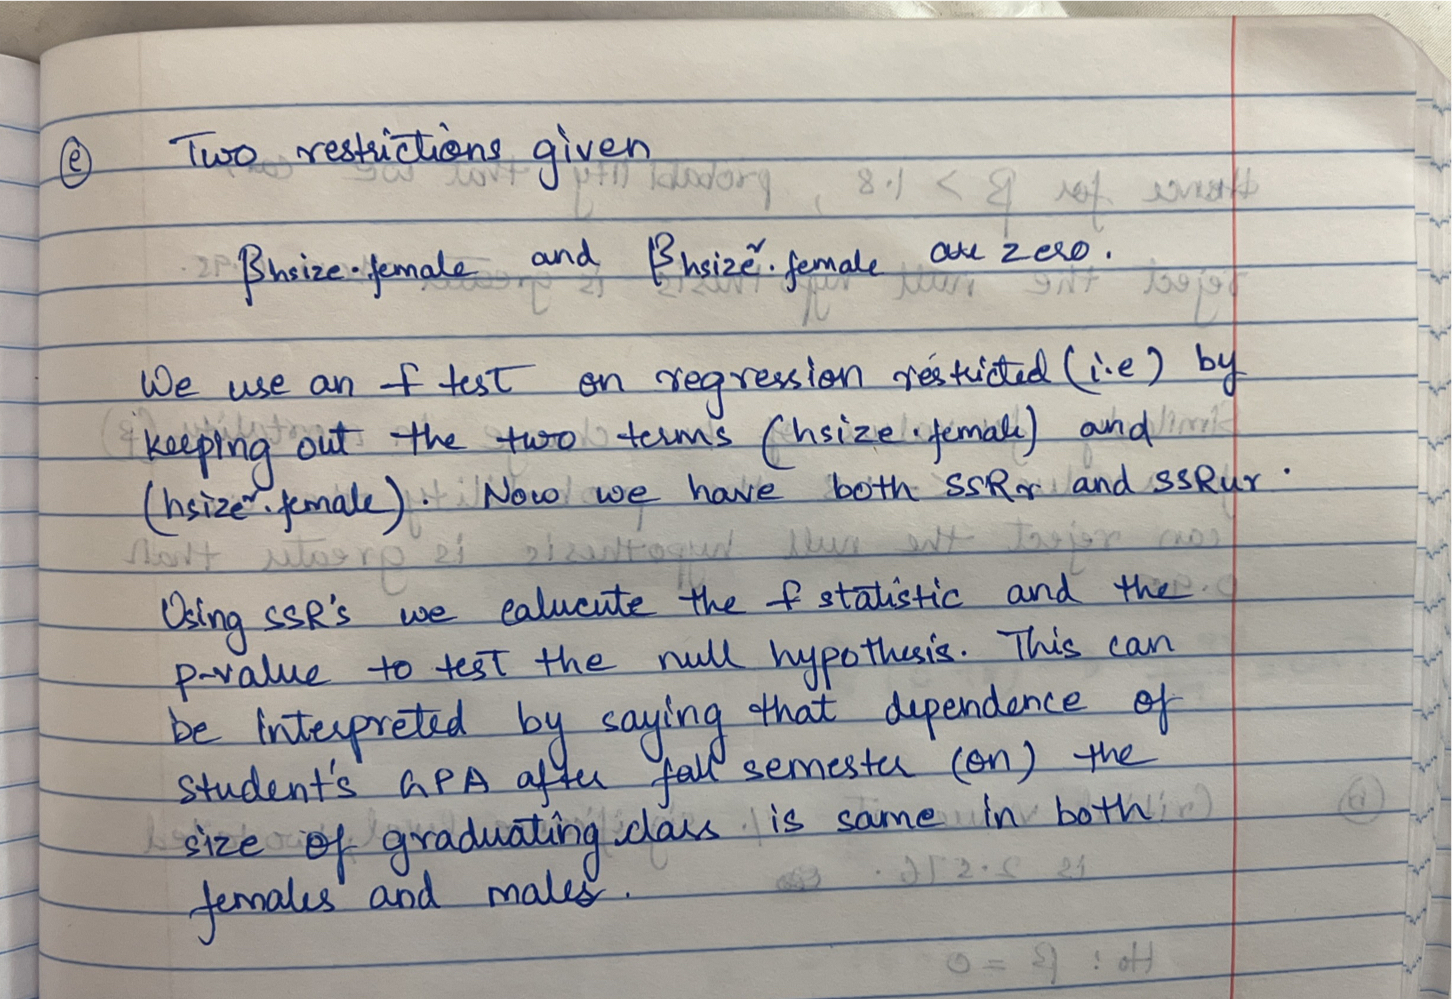 (e) Two restrictions given
βhsize·female and βhsize²·female are zero.
We use an f test on regression restricted (i.e) by
keeping out the two terms (hsize·female) and
(hsize²·female). Now we have both SSRr and SSRur.
Using SSR's we calucute the f statistic and the
p-value to test the null hypothesis. This can
be interpreted by saying that dependence of
student's GPA after fall semester (on) the
size of graduating class is same in both
females and males.
Ho: β = 0